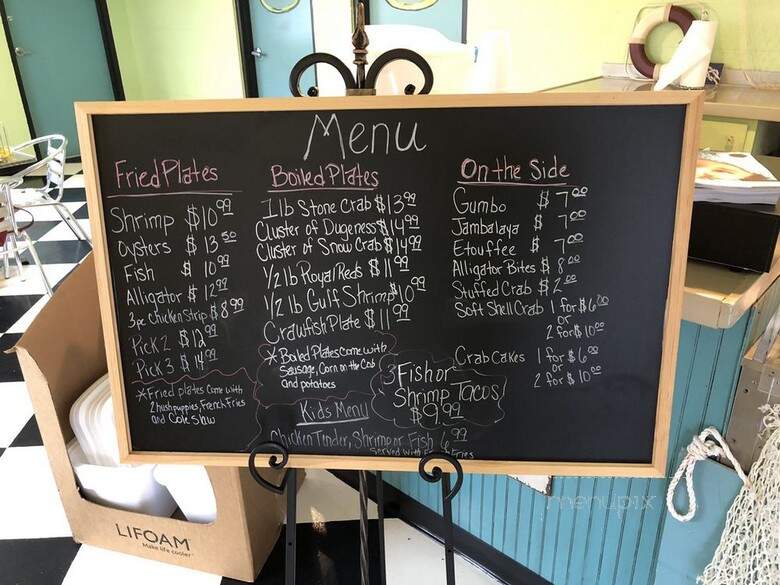 Menu
Fried Plates
Shrimp $10.99
Oysters $ 13.50
Fish $ 10.99
Alligator $ 12.99
3pc chicken Strip $ 8.99
Pick 2 $ 12.99
Pick 3 $ 14.99
*Fried plates come with
2 hushpuppies, French Fries
and Cole Slaw
Boiled Plates
1 lb Stone Crab $13.99
Cluster of Dugeness $14.99
Cluster of Snow Crab $14.99
1/2 lb Royal Reds $ 11.99
1/2 lb Gulf Shrimp $10.99
Crawfish Plate $ 11.99
*Boiled Plates come with
Sausage, Corn on the Cob
and potatoes
Kids Menu
Chicken Tender, Shrimp or Fish 6.99
Served with Fries
3 Fish or
Shrimp Tacos
$9.99
On the Side
Gumbo $ 7.00
Jambalaya $ 7.00
Etouffee $ 7.00
Alligator Bites $ 8.00
Stuffed Crab $ 2.00
Soft Shell Crab 1 for $6.00
or
2 for $ 10.00
Crab Cakes 1 for $6.00
or
2 for $ 10.00
LIFOAM
Make life cooler
menupix